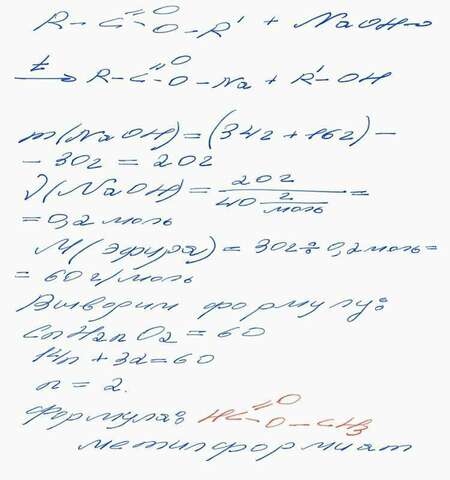 R-C=O-O-R' + NaOH→
t→ R-C=O-O-Na + R'-OH
m(NaOH)=(34г+16г)-
-30г=20г
ν(NaOH)=20г/40 г/моль=
=0,2 моль
M(эфира)=30г÷0,2моль=
=60г/моль
Выводим формулу:
CnH2nO2=60
14n+32=60
n=2.
Формула: HC=O-O-CH3
метилформиат